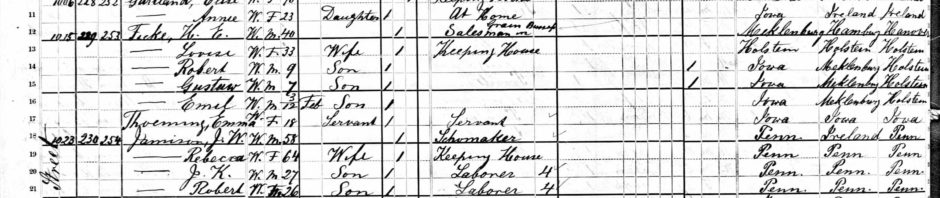 1006 228 252 Garland, Elsie W F 70 1 Keeping House
Annie W F 23 Daughter 1 At Home Iowa Ireland Ireland
12 1015 229 253 Ficke, H. E. W. M. 40 1 Salesman in Grain Business Mecklenburg Hamburg Hanover
13 — Louise W. F. 33 Wife 1 Keeping House Holstein Holstein Holstein
14 — Robert W. M. 9 Son 1 1 Iowa Mecklenburg Holstein
15 — Gustav W. M. 7 Son 1 1 Iowa Mecklenburg Holstein
16 — Emil W. M. 3/12 Feb Son 1 Iowa Mecklenburg Holstein
17 Thoeming, Emma W. F. 18 Servant 1 Servant Iowa Iowa Iowa
18 1023 230 254 Jamison, J. W. W. M. 58 1 Schomaker Penn. Ireland Penn
19 — Rebecca W. F. 64 Wife 1 Keeping House Penn Penn Penn
20 — J. K. W. M. 27 Son 1 Laborer 4 Penn. Penn. Penn.
21 — Robert W. M. 26 Son 1 Laborer 4 Penn. Penn. Penn.
Street